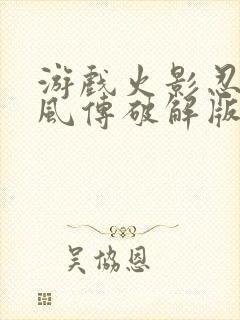 游戏火影忍
風傳破解版
吴协恩